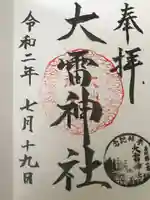 奉拝
大雷神社
令和二年 七月十九日